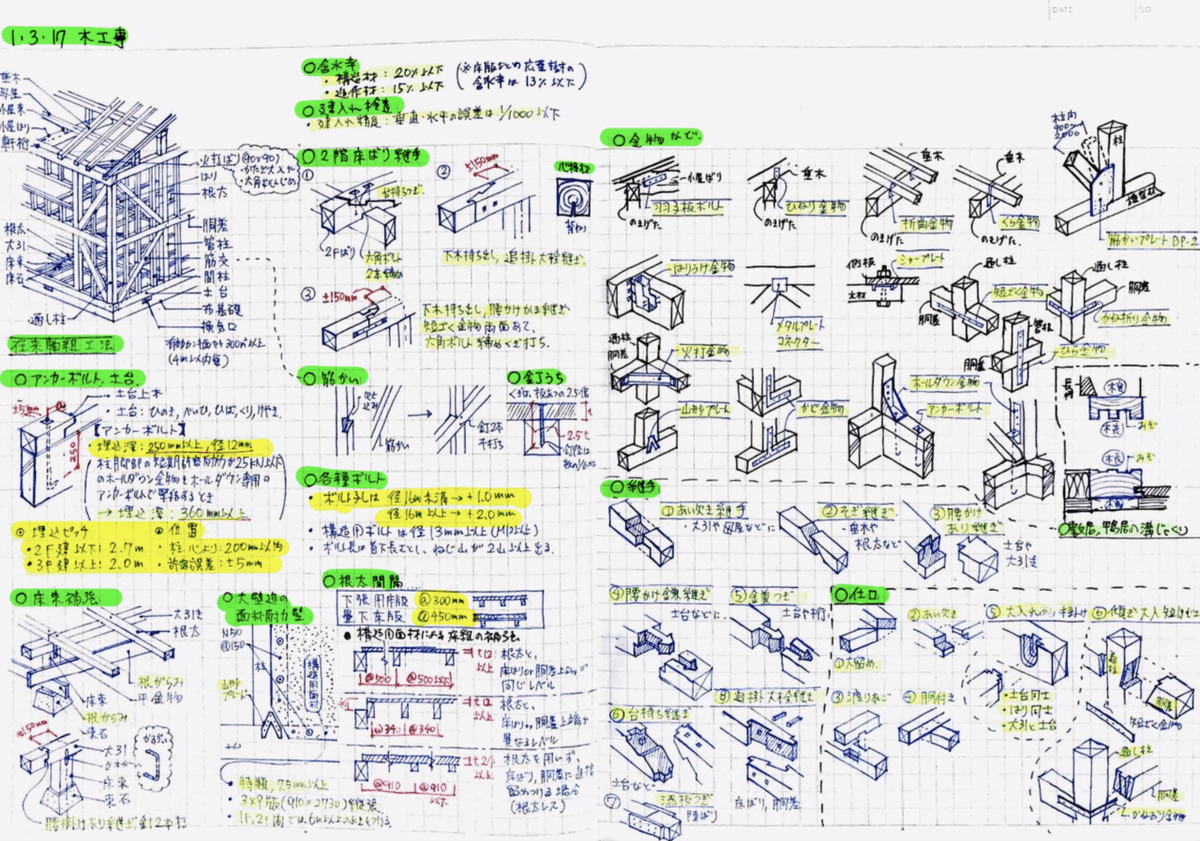 DATE NO
1・3・17 木工事
垂木
小屋束
小屋ばり
軒桁
火打ばり(90×90)
はり
根太
胴差
管柱
筋交
間柱
土台
布基礎
換気口
根太
大引
床束
床石
通し柱
有効換気面積300㎠以上
(4m以内毎)
在来軸組工法
○含水率
・構造材:20%以下
・造作材:15%以下
○建入れ検査
・建入れ精度:垂直・水平の誤差は1/1000以下
○2階床ばり継手
①
台持ちつぎ
2Fばり
六角ボルト
2本締め
②
±150mm
下木持ち出し、追掛大栓継ぎ
心持柱
背わり
③
±150mm
下木持ち出し、腰かけかま継ぎ
短ざく金物両面あて、
六角ボルト締めくぎ打ち。
○アンカーボルト、土台
土台上木
・土台:ひのき、べいひ、ひば、くり、けやき。
【アンカーボルト】
・埋込深:250mm以上,径12mm
250
柱脚部の短期許容耐力が25kN以下
のホールダウン金物をホールダウン専用の
アンカーボルトで緊結するとき
→ 埋込深:360mm以上
◎埋込ピッチ
・2F建以下:2.7m
・3F建以上:2.0m
◎位置
・柱心より:200mm以内
・許容誤差:±5mm
○筋かい
筋かい
釘2本
平打ち
○釘うち
くぎは、板あつの2.5倍
2.5t
○各種ボルト
・ボルト孔は 径16mm未満→+1.0mm
径16mm以上→+2.0mm
・構造用ボルトは径13mm以上(M12以上)
・ボルト長は首下長さとし、ねじ山が2山以上出る。
○床束補強
大引き
根太
根がらみ
平金物
床束
根がらみ
束石
±150mm
大引
かすがい
床束
束石
腰掛けあり継ぎ、釘2本打
○大壁造の
面材耐力壁
N50
@150
柱
構造用面材
山形プレート
・特類、7.5mm以上
・3×9版(910×2730)
○根太間隔
下張用床版 @300mm
畳下床版 @450mm
●構造用面材による床組の補強
t12
以上
@500 @500以下
根太と、
床ばりor胴差上端が
同じレベル
t12
以上
@340 @340
根太と、
床ばり,胴差上端が
異なるレベル
t24
以上
@910 @910
以下
根太を用いず、
床ばり,胴差に直接
留めつける場合
(根太レス)
○金物など。
小屋ばり
羽子板ボルト
のきげた
垂木
ひねり金物
のきげた
垂木
折曲金物
のきげた
垂木
くら金物
のきげた
柱
筋かいプレートBP-2
はりうけ金物
メタルプレート
コネクター
側板
シャープレート
土柱
通し柱
短ざく金物
胴差
通し柱
胴差
かね折り金物
通柱
胴差
火打金物
山形プレート
かど金物
ホールダウン金物
アンカーボルト
管柱
胴差
ひら金物
長押
木裏
木表
みぞ
木表
みぞ
木裏
○敷居、鴨居の溝じゃくり
○継手
①あいかき継手
・大引や母屋などに
②そぎ継ぎ
・垂木や
根太など
③腰かけ
あり継ぎ
・土台や
大引き
④腰かけ鎌継ぎ
土台などに
⑤金輪つぎ
土台や桁
⑥台持ち継ぎ
土台など
⑦添板つぎ
陸ばり
⑧追掛大栓継ぎ
床ばり、胴差
○仕口
①大留め
②あい欠き
③渡りあご
④胴付き
⑤大入れあり掛け
・土台同士
・はり同士
・大引と土台
⑥傾ぎ大入短ほぞ
通柱
胴差
短ざく金物
通し柱
胴差
かねおり金物